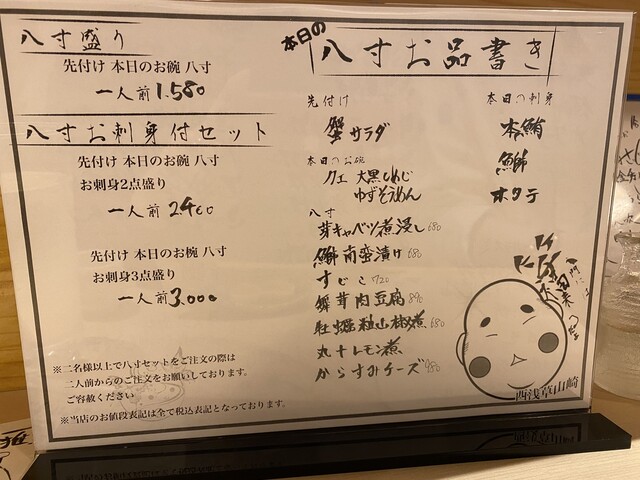 八寸盛り
先付け 本日のお椀 八寸
一人前1.580
八寸お刺身付セット
先付け 本日のお椀 八寸
お刺身2点盛り
一人前2.400
先付け 本日のお椀 八寸
お刺身3点盛り
一人前3.000
※二名様以上で八寸セットをご注文の際は
二人前からのご注文をお願いしております。
ご容赦ください
※当店のお値段表記は全て税込表記となっております。
本日の
八寸お品書き
先付け
蟹サラダ
本日のお椀
クエ 大黒しめじ
ゆずそうめん
八寸
芽キャベツ煮浸し 680
鰤南蛮漬け 680
すじこ 720
舞茸肉豆腐 890
牡蠣粒山椒煮 680
丸十レモン煮
からすみチーズ 980
本日の刺身
本鮪
鰤
ホタテ
西浅草山崎